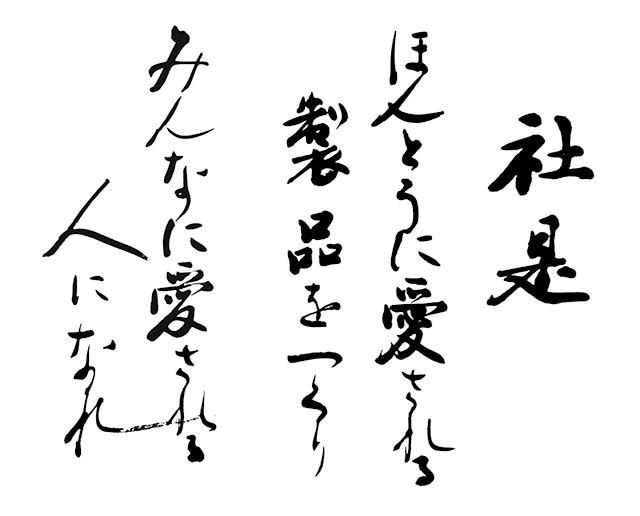 社是
ほんとうに愛される
製品をつくり
みんなに愛される
人になれ